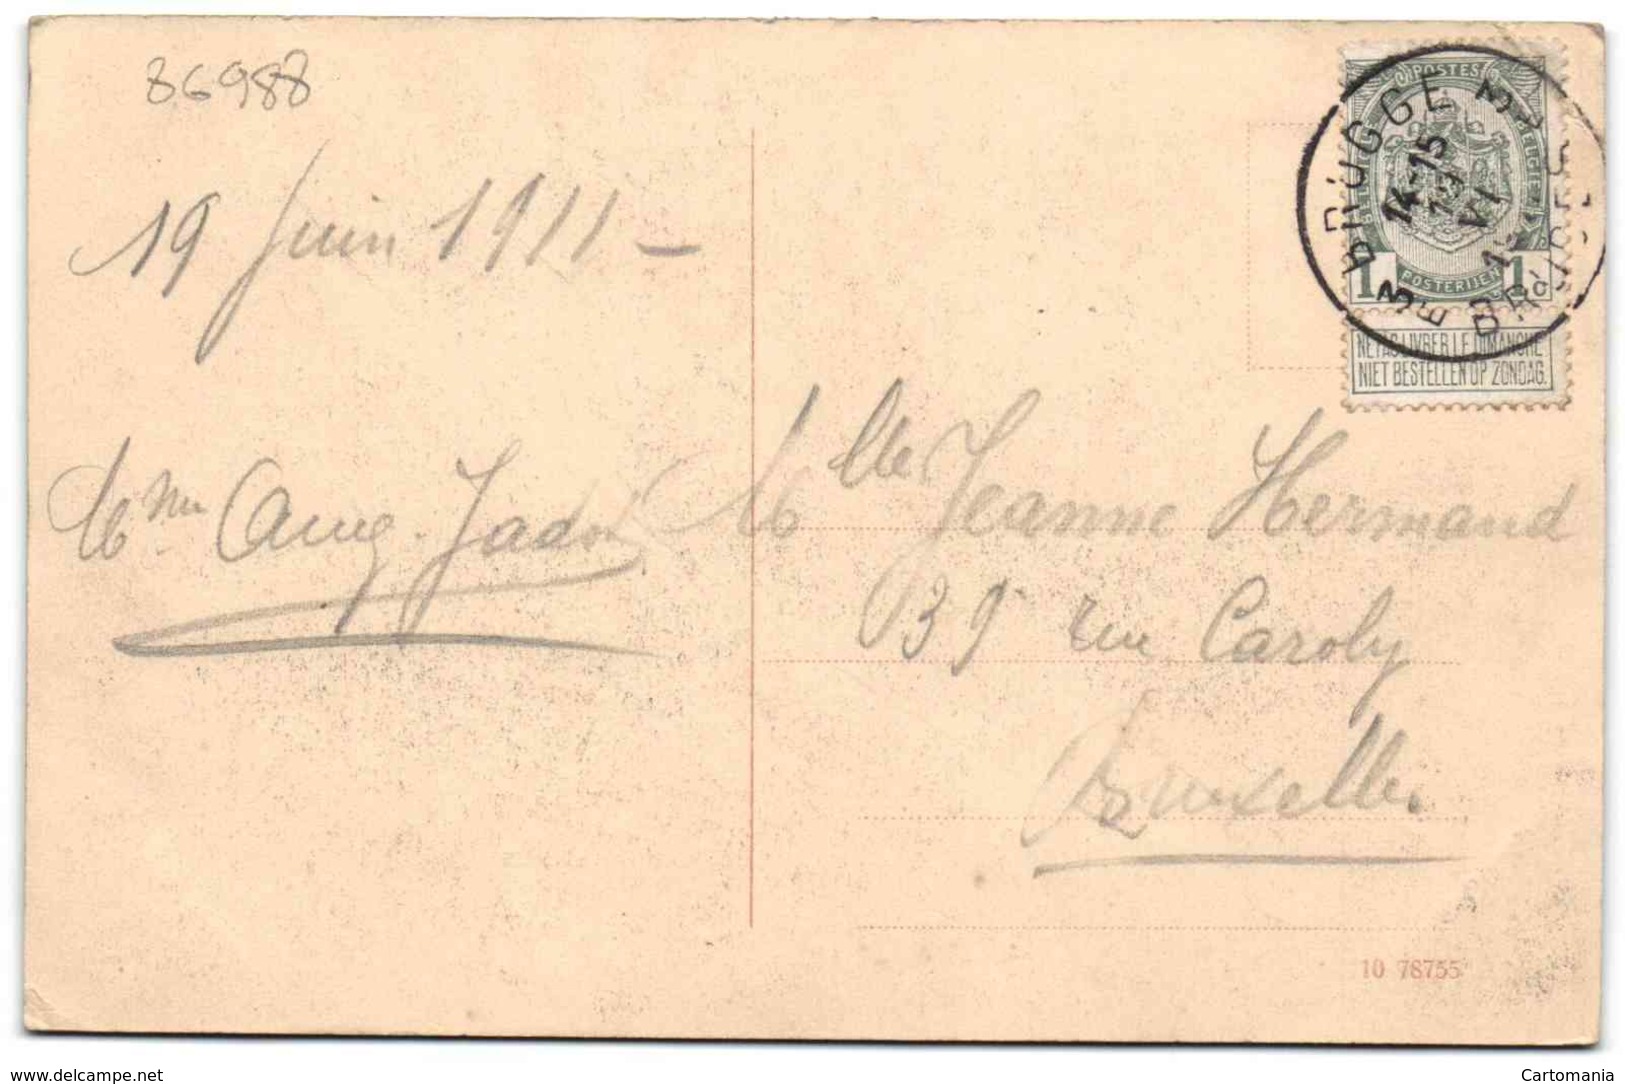 86988
19 Juin 1911 -
Mme Aug. Jadot
Mlle Jeanne Hermand
39 rue Caroly
Bruxelles
POSTES
BELGIQUE
BELGIË
1 POSTERIJEN 1
NE PAS LIVRER LE DIMANCHE
NIET BESTELLEN OP ZONDAG.
BRUGGE 3
14-15
19
VI
BRUGES
3 E
10 78755
www.delcampe.net
Cartomania